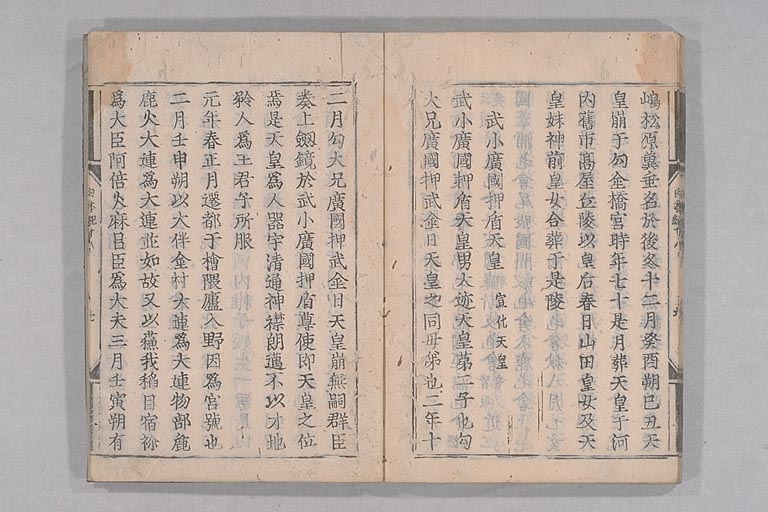 嶋松原冀垂名於後冬十二月癸酉朔己丑天
皇崩于勾金橋宮時年七十是月葬天皇于河
内舊市髙屋丘陵以皇后春日山田皇女及天
皇妹神前皇女合葬于是陵
武小廣國押盾天皇 宣化天皇
武小廣國押盾天皇男大迹天皇第二子也勾
大兄廣國押武金日天皇之同母弟也二年十
二月勾大兄廣國押武金日天皇崩無嗣群臣
奏上劔鏡於武小廣國押盾尊使即天皇之位
焉是天皇爲人器宇清通神襟朗邁不以才地
矜人爲王君子所服
元年春正月遷都于檜隈廬入野因爲宮號也
二月壬申朔以大伴金村大連爲大連物部麁
鹿火大連爲大連並如故又以蘇我稻目宿祢
爲大臣阿倍火麻呂臣爲大夫三月壬寅朔有